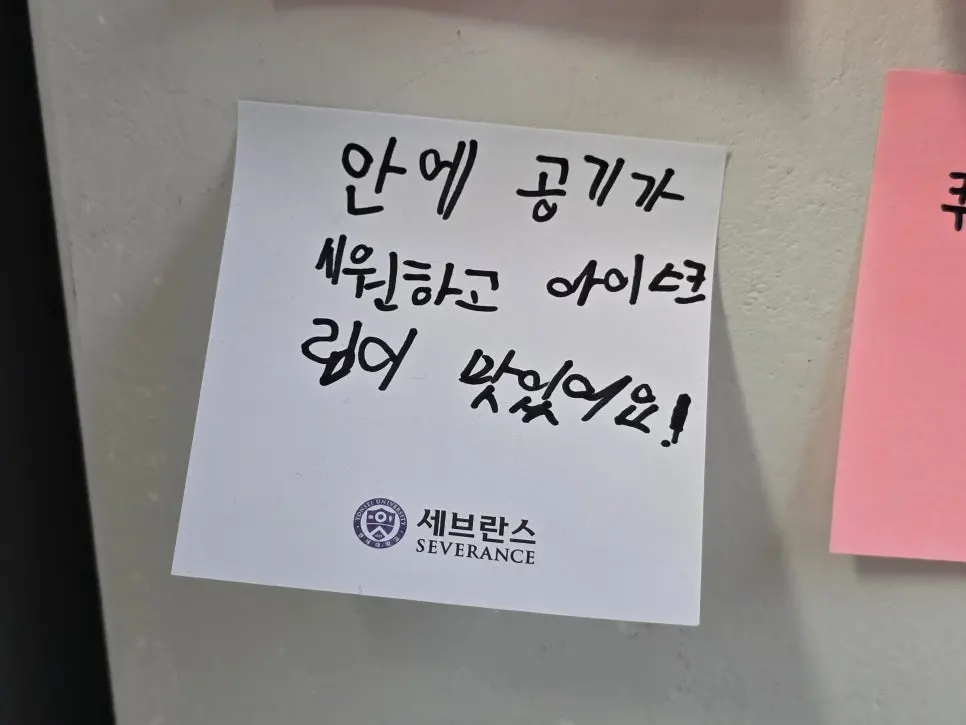 안에 공기가
시원하고 아이스크
림이 맛있어요!
YONSEI UNIVERSITY
세브란스
SEVERANCE